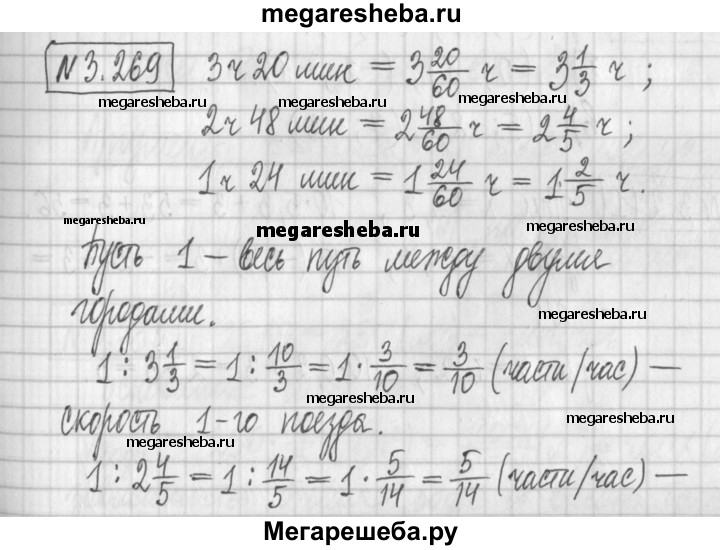 megaresheba.ru
№3.269 3 ч 20 мин = 3 20/60 ч = 3 1/3 ч ;
megaresheba.ru megaresheba.ru
2 ч 48 мин = 2 48/60 ч = 2 4/5 ч ;
megaresheba.ru megaresheba.ru
1 ч 24 мин = 1 24/60 ч = 1 2/5 ч.
megaresheba.ru megaresheba.ru
Пусть 1 – весь путь между двумя
megaresheba.ru megaresheba.ru
городами.
1 : 3 1/3 = 1 : 10/3 = 1 · 3/10 = 3/10 (части/час) —
megaresheba.ru megaresheba.ru
скорость 1-го поезда.
megaresheba.ru megaresheba.ru
1 : 2 4/5 = 1 : 14/5 = 1 · 5/14 = 5/14 (части/час) —
megaresheba.ru megaresheba.ru
Мегарешеба.ру